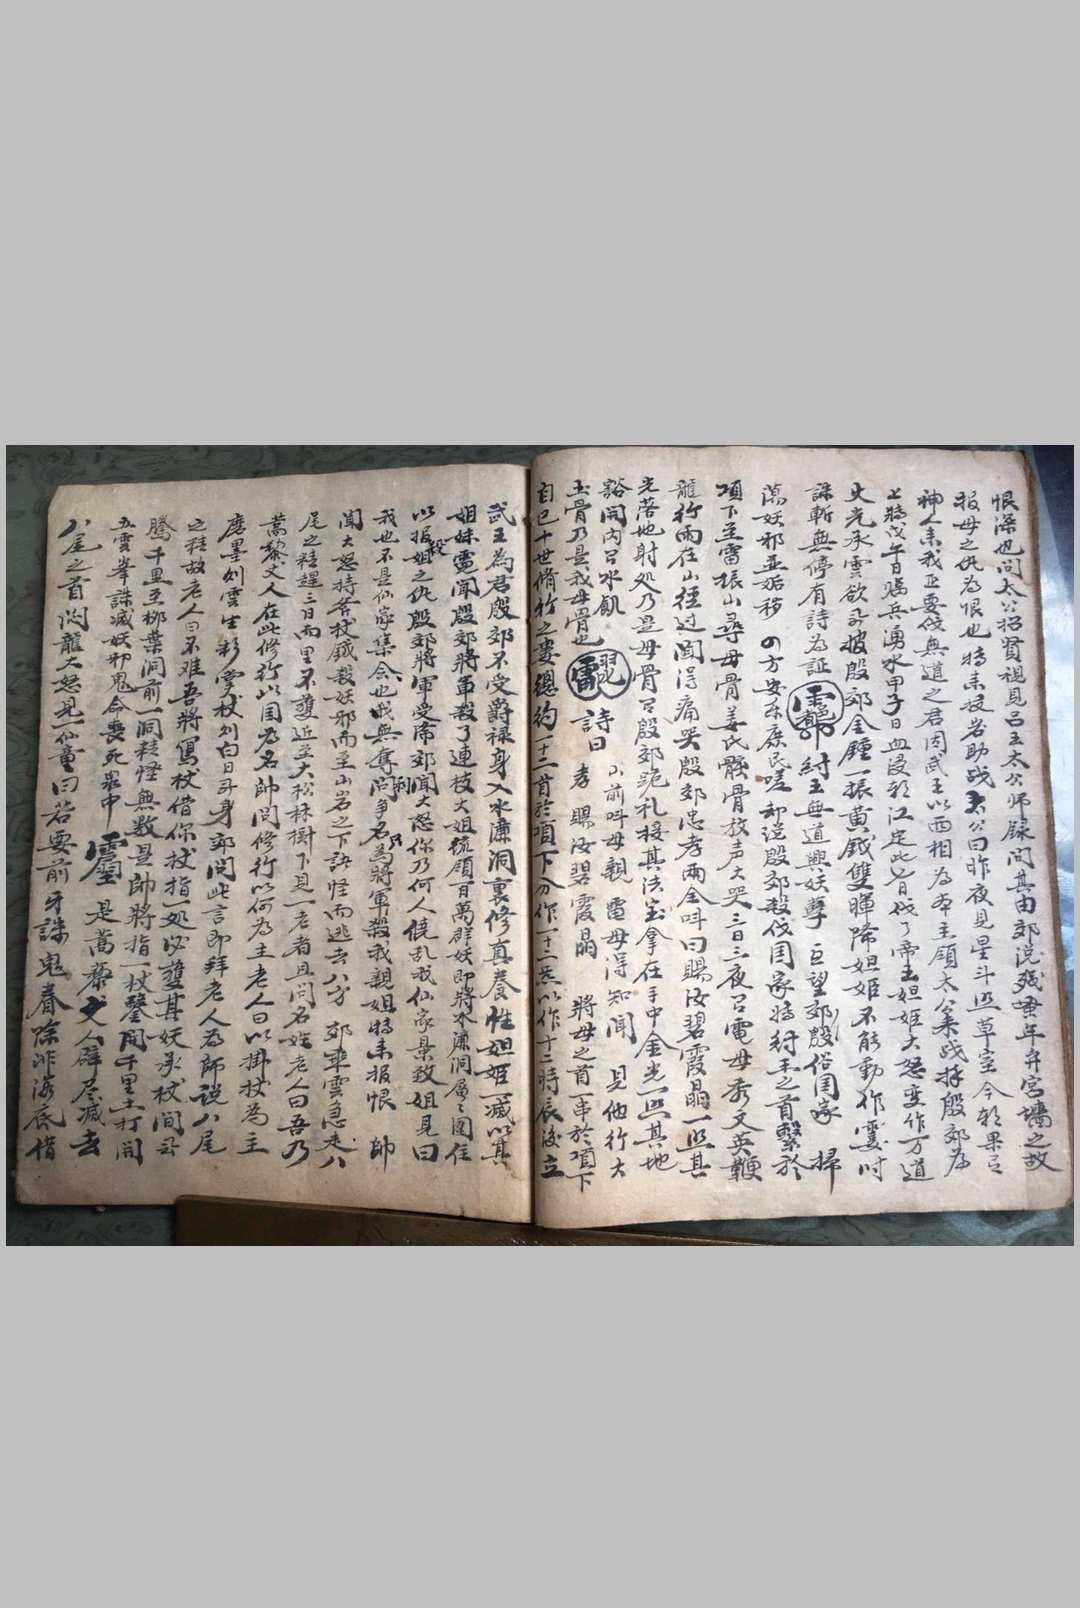 恨深也问太公招賢祖見呂王太公师錄问其由郊説残年弃宮墻之故
报母之仇为恨也特来投岩助战太公曰昨夜見星斗照草室今朝果有
神人来我正要伐無道之君周武王以西相为本主領太公集战拜殷郊为
上將戊午日騰兵湧水甲子日血浸朝江定此七日伐了帝主妲姬大怒变作万道
火光承雲欲昇披殷郊金鍾一振黃鉞雙暉降妲姬不能動作霎时
誅斬無停有詩为証 紂王無道興妖孽 巨望郊殷俗国家 掃
蕩妖邪並垢秽 四方安东庶民嗟 却说殷郊殺伐国家将紂王之首繫於
項下至雷振山尋母骨姜氏骸骨放声大哭三日三夜呂電母秀文英鞭
龍行雨在山徑过闻得痛哭殷郊忠孝兩全呌曰賜汝碧霞晶一照其
光落地射処乃是母骨呂殷郊跪礼接其法宝拿在手中金光一照其地
豁開内呂水飢
玉骨乃是我母骨也 詩曰 山前呌母親 電母得知聞 見他行大
孝 賜汝碧霞晶 將母之首一串於項下
自己十世脩行之婁總約十二首於項下分作十二炁以作十二時辰後立
武王为君殷郊不受爵禄身入水濂洞裏修真養性妲姬一滅以其
姐妹電闻殷郊將軍殺了連枝大姐統領百萬群妖即將水濂洞层々圍住
以报殺姐之仇殷郊將軍受席郊闻大怒你乃何人侵乱我仙家景致姐見曰
我也不是仙家集会也我無奪問争名利只为將軍殺我親姐特来报恨 帥
闻大怒持茖杖鉞殺妖邪而至山岩之下訣怪而逃去八方 郊乘雲急走八
尾之精趕三日而里不獲近至大松林樹下見一老者且问名姓老人曰吾乃
蒿藜丈人在此修行以国为名帥问修行以何为主老人曰以掛杖为主
磨墨刘雲生彩雲杖刘白日昇身郊问此言即拜老人为師説八尾
之精故老人曰不难吾將寫杖借你杖指一処必獲其妖承杖间昇
騰千里至柳葉洞前一洞精怪無数是帥將指一杖鑿開千里土打開
五雲峯誅滅妖邪鬼命喪死罪中 是蒿藜丈人辟尽滅去
八尾之首 洞龍大怒見一仙童曰若要前牙誅鬼眷除非海底借